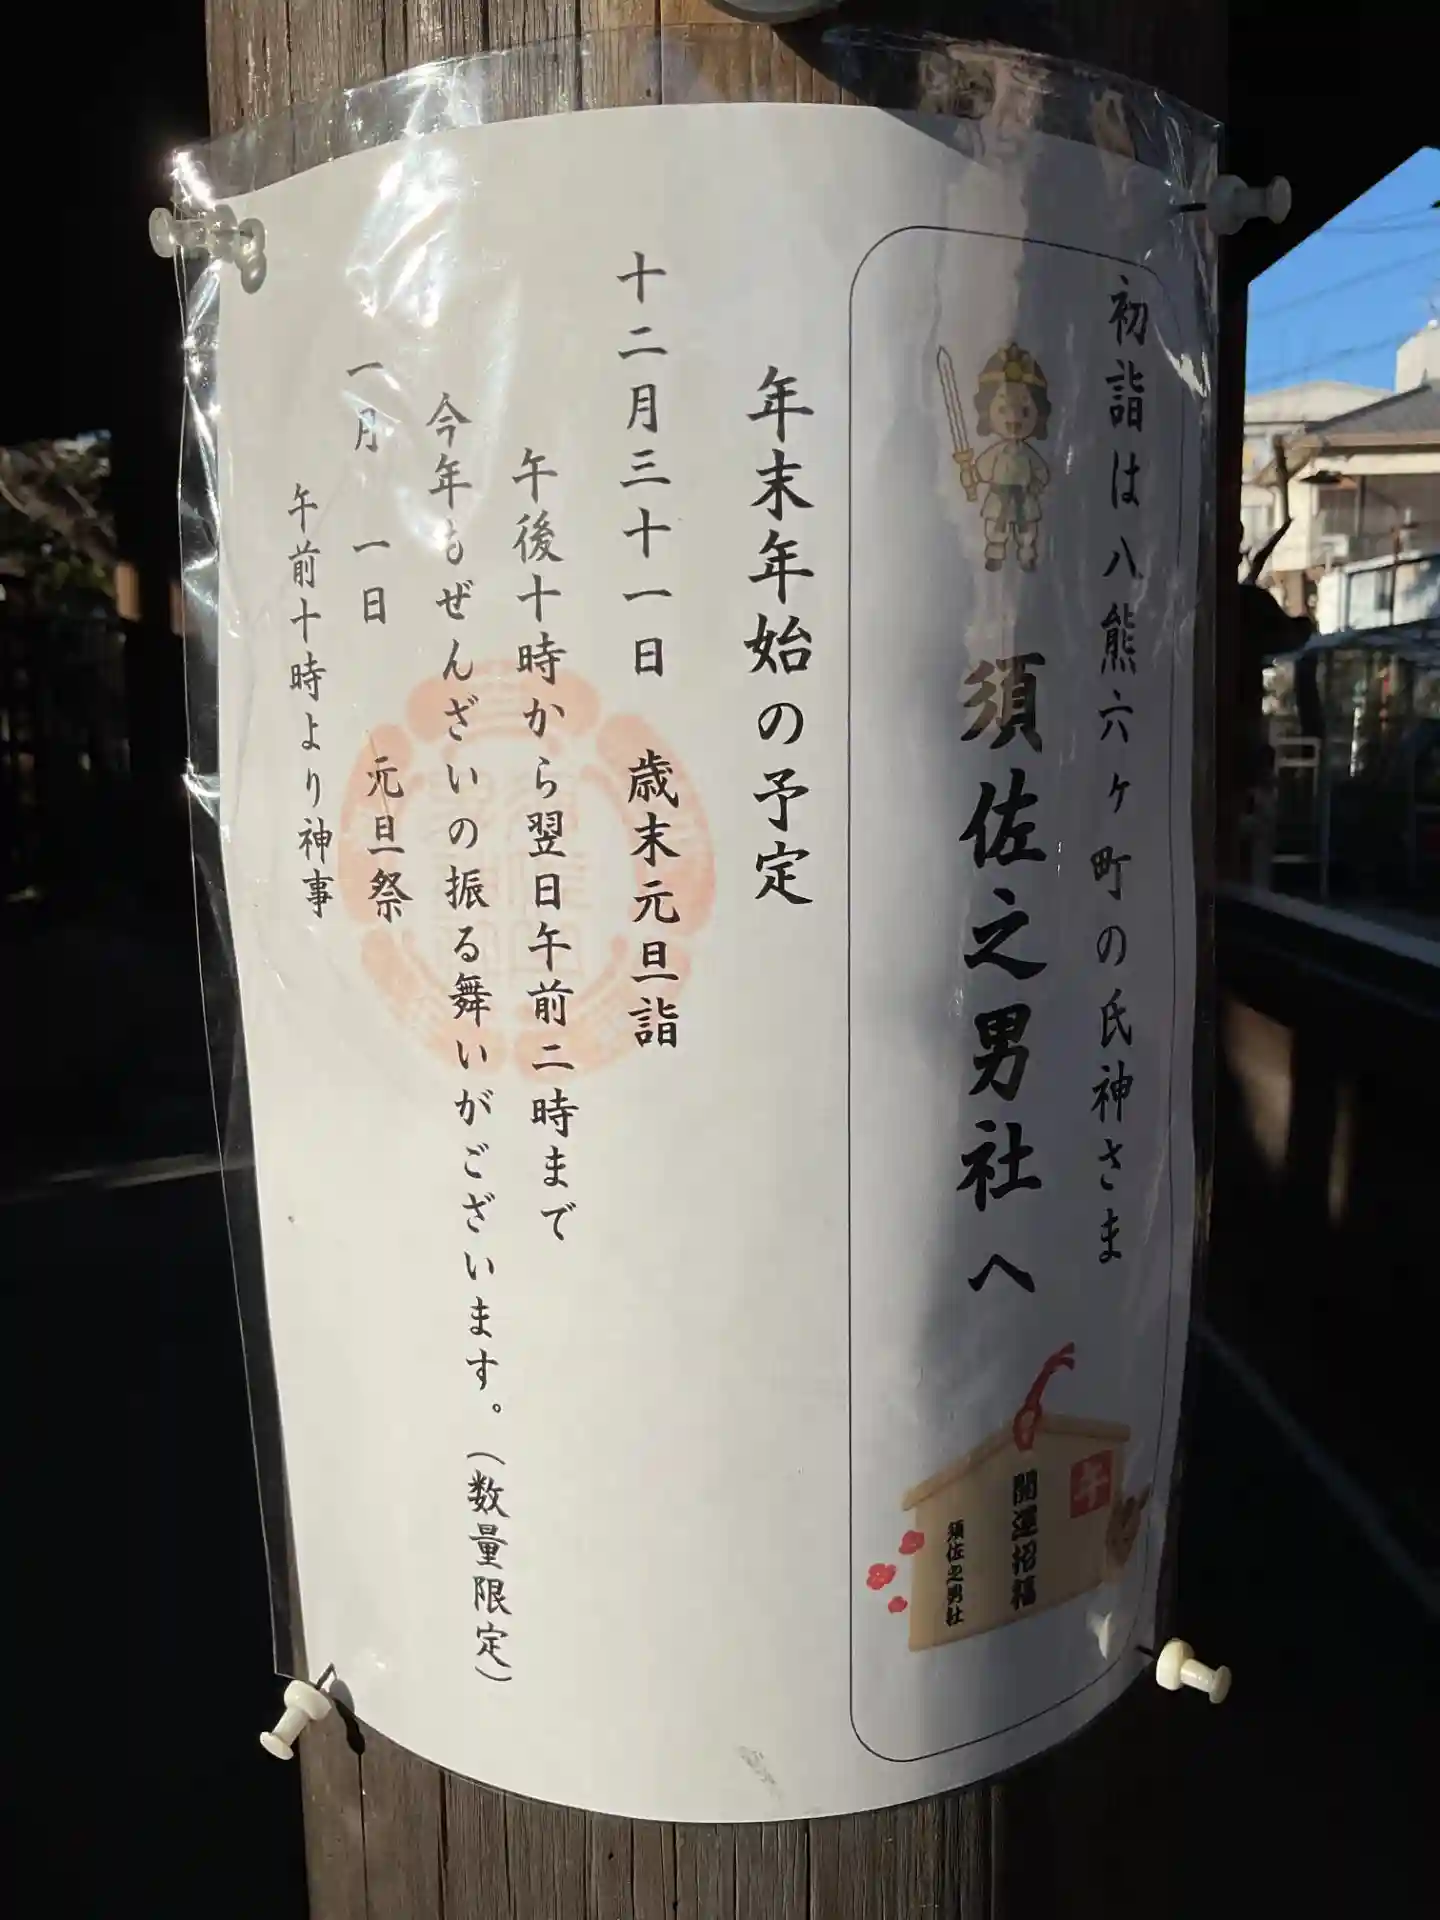 初詣は八熊六ヶ町の氏神さま
須佐之男社へ
午
開運招福
須佐之男社
年末年始の予定
十二月三十一日 歳末元旦詣
午後十時から翌日午前二時まで
今年もぜんざいの振る舞いがございます。(数量限定)
一月 一日 元旦祭
午前十時より神事